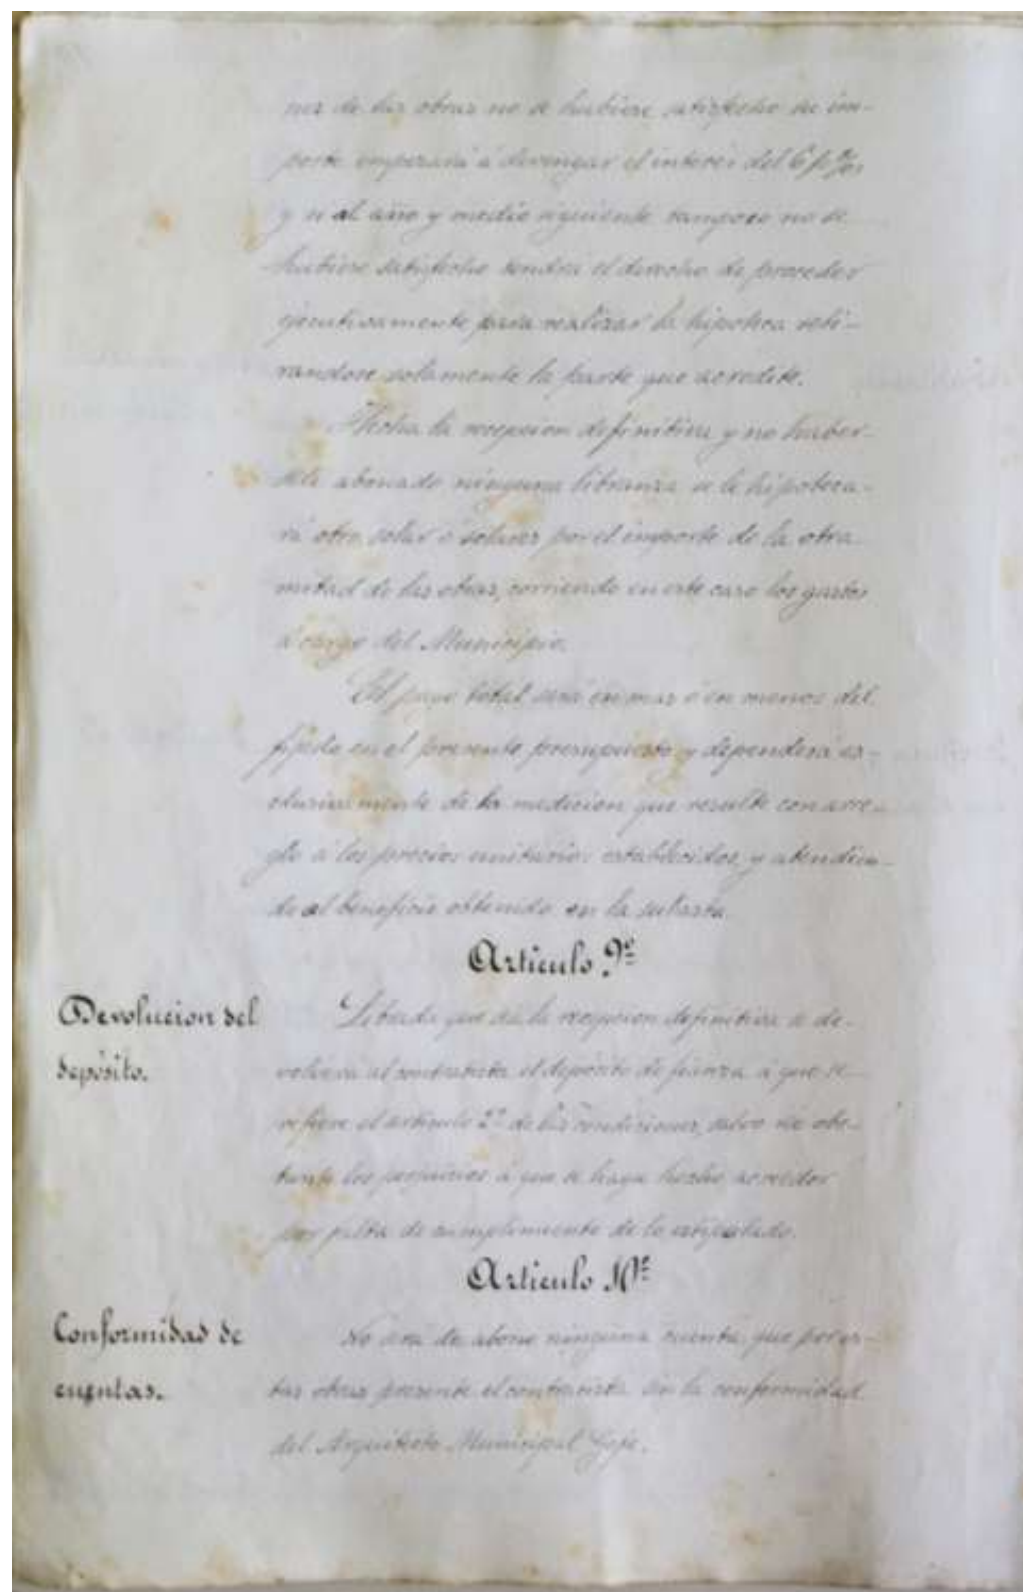 nes de las obras no se hubiere satisfecho su im-
porte empezará á devengar el interés del 6 p%
y si al año y medio siguiente tampoco no se
hubiere satisfecho tendrá el derecho de proceder
ejecutivamente para realizar la hipoteca reti-
randose solamente la parte que acredite.
Hecha la recepcion definitiva y no haber-
sele abonado ninguna libranza se le hipoteca-
rá otro solar ó solares por el importe de la otra
mitad de las obras, corriendo en este caso los gastos
á cargo del Municipio.
El pago total será en mas ó en menos del
fijado en el presente presupuesto y dependerá es-
clusivamente de la medicion que resulte con arre-
glo á los precios unitarios establecidos, y atendien-
do al beneficio obtenido en la subasta.
Artículo 9º
Devolucion del
depósito.
que sea la recepcion definitiva se de-
volverá al contratista el depósito de fianza á que se
refiere el artículo 2º de las condiciones, salvo no obs-
tante los perjuicios á que se haya hecho acreedor
por falta de cumplimiento de lo estipulado.
Artículo 10º
Conformidad de
cuentas.
No será de abono ninguna cuenta que por es-
tas obras presente el contratista sin la conformidad
del Arquitecto Municipal Gefe.